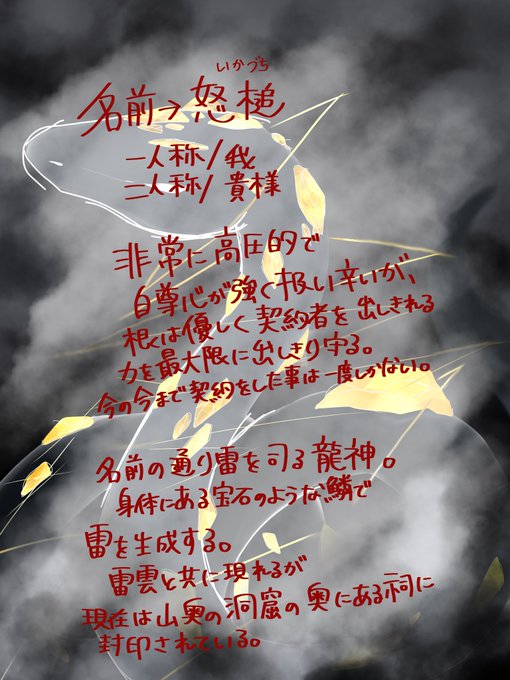 いかづち
名前→怒槌
一人称/我
二人称/貴様
非常に高圧的で
自尊心が強く扱い辛いが、
根は優しく契約者を出しきれる
力を最大限に出しきり守る。
今の今まで契約をした事は一度しかない。
名前の通り雷を司る龍神。
身体にある宝石のような鱗で
雷を生成する。
雷雲と共に現れるが
現在は山奥の洞窟の奥にある祠に
封印されている。